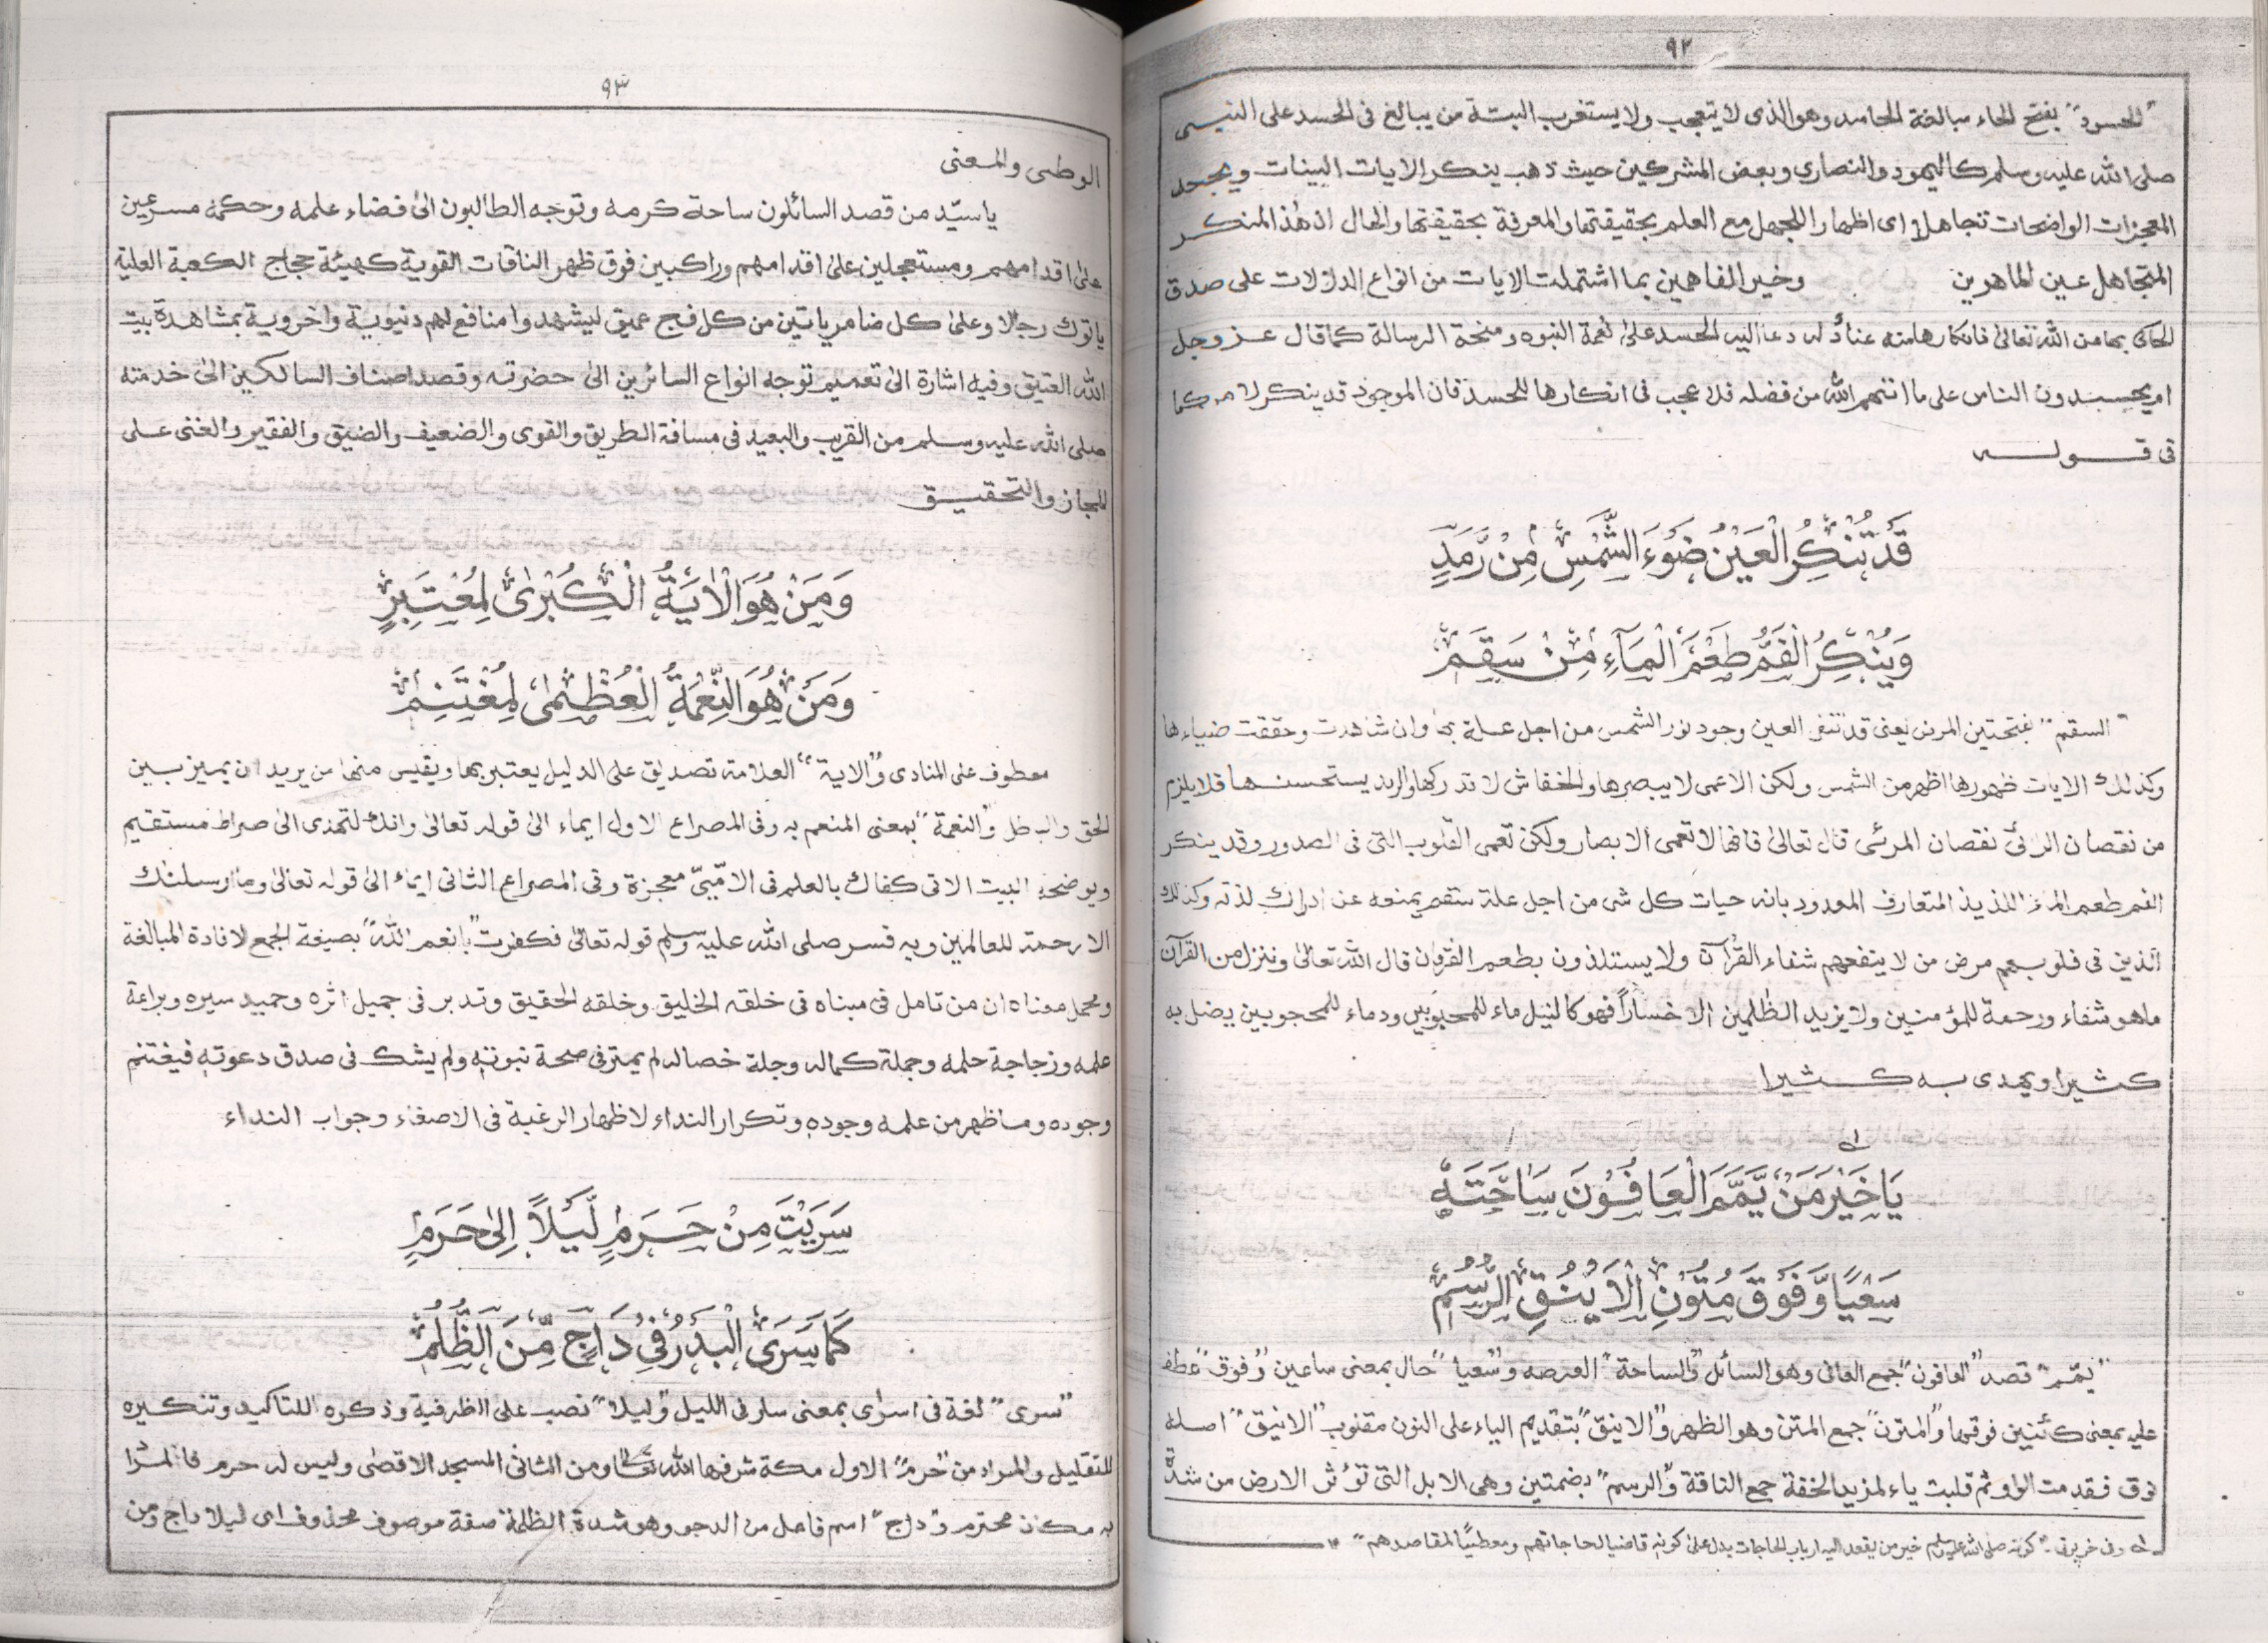 ٩٢
"الحسود" بفتح الحاء مبالغة الحاسد وهو الذى لا يتعجب ولا يستغرب البتة من يبالغ فى الحسد على النبى
صلى الله عليه وسلم كاليهود والنصارى وبعض المشركين حيث ذهب ينكر الايات البينات ويجحد
المعجزات الواضحات تجاهلا اى اظهار الجهل مع العلم بحقيقتها والمعرفة بحقيقتها والحال ان هذا المنكر
المتجاهل عين الماهرين وخير الفاهمين بما اشتملت الايات من انواع الدلالات على صدق
الحاكى بها من الله تعالى فانكارها منه عناد له دعا اليه الحسد على نعمة النبوه ومنحة الرسالة كما قال عز وجل
ام يحسدون الناس على ما اتهم الله من فضله فلا عجب فى انكارها للحسد فان الموجود قد ينكر لامر كما
فى قوله
قَدْ تُنْكِرُ الْعَيْنُ ضَوْءَ الشَّمْسِ مِنْ رَّمَدٍ
وَيُنْكِرُ الْفَمُّ طَعْمَ الْمَآءِ مِنْ سَقَمٖ
"السقم" بفتحتين المرض يعنى قد تنفر العين وجود نور الشمس من اجل علة بها وان شاهدت وحققت ضياءها
وكذلك الايات ظهورها اظهر من الشمس ولكن الاعمى لا يبصرها والخفاش لا تدركها والرمد يستحسنها فلا يلزم
من نقصان الرائى نقصان المرئى قال تعالى فانها لا تعمى الابصار ولكن تعمى القلوب التى فى الصدور وقد ينكر
الفم طعم الماء اللذيذ المتعارف المعدود بانه حيات كل شى من اجل علة سقم يمنعه عن ادراك لذته وكذلك
الذين فى قلوبهم مرض من لا ينفعهم شفاء القرآن ولا يستلذون بطعم الفرقان قال الله تعالى وننزل من القرآن
ماهو شفاء ورحمة للمؤمنين ولا يزيد الظلمين الا خسارا فهو كالنيل ماء للمحبوبين ودماء للمحجوبين يضل به
كثيرا ويهدى به كثيرا
يَا خَيْرَ مَنْ يَّمَّمَ الْعَافُوْنَ سَاحَتَهٗ
سَعْيًا وَّفَوْقَ مُتُوْنِ الْاَيْنُقِ الرُّسُمٖ
"يمّم" قصد "العافون" جمع العافى وهو السائل "والساحة" العرصه و"سعيا" حال بمعنى ساعين "وفوق" عطف
عليه بمعنى كائنين فوقها و"المتون" جمع المتن وهو الظهر و"الاينق" بتقديم الياء على النون مقلوب "الانيق" اصله
نوق فقدمت الواو ثم قلبت ياء لمزيد الخفة جمع الناقة و"الرسم" بضمتين وهى الابل التى تؤثر الارض من شدة
له وفى خرپوتى "كونه صلى الله عليه وسلم خير من يقعد اليه ارباب الحاجات يدل على كونه قاضيا لحاجاتهم ومعطيًا لمقاصدهم" ١٢
٩٣
الوطى والمعنى
ياسيّد من قصد السائلون ساحة كرمه وتوجه الطالبون الى فضاء علمه وحكمه مسرعين
على اقدامهم ومستعجلين على اقدامهم وراكبين فوق ظهر الناقات القوية كهيئة حجاج الكعبة العلية
ياتوك رجالا وعلى كل ضامر ياتين من كل فج عميق ليشهدوا منافع لهم دنيوية واخروية بمشاهدة بيت
الله العتيق وفيه اشارة الى تعميم توجه انواع السائرين الى حضرته وقصد اصناف السالكين الى خدمته
صلى الله عليه وسلم من القريب والبعيد فى مسافة الطريق والقوى والضعيف والضيق والفقير والغنى على
المجاز والتحقيق
وَمَنْ هُوَ الْاٰيَةُ الْكُبْرٰى لِمُعْتَبِرٍ
وَمَنْ هُوَ النِّعْمَةُ الْعُظْمٰى لِمُغْتَنِمٖ
معطوف على المنادى و"الاية" العلامة تصديق على الدليل يعتبر بها ويقيس منها من يريد ان يميز بين
الحق والباطل و"النعمة" بمعنى المنعم به وفى المصراع الاول ايماء الى قوله تعالى وانك لتهدى الى صراط مستقيم
ويوضحه البيت الاتى كفاك بالعلم فى الامّىّ معجزة وفى المصراع الثانى ايماء الى قوله تعالى وما ارسلنك
الا رحمة للعالمين وبه فسر صلى الله عليه وسلم قوله تعالى فكفرت "بانعم الله" بصيغة الجمع لافادة المبالغة
ومحمل معناه ان من تامل فى مبناه فى خلقه الخليق وخلقه الحقيق وتدبر فى جميل اثره وحميد سيره وبراعة
علمه وزجاجة حلمه وجملة كماله وجلة خصاله لم يمتر فى صحة نبوته ولم يشك فى صدق دعوته فيغتنم
وجوده وما ظهر من علمه وجوده وتكرار النداء لاظهار الرغبة فى الاصغاء وجواب النداء
سَرَيْتَ مِنْ حَرَمٍ لَّيْلًا اِلٰى حَرَمٍ
كَمَا سَرَى الْبَدْرُ فِىْ دَاجٍ مِّنَ الظُّلَمٖ
"سرى" لغة فى اسرٰى بمعنى سار فى الليل و"ليلا" نصب على الظرفية وذكره للتاكيد وتنكيره
للتقليل والمراد من "حرم" الاول مكة شرفها الله تعالى ومن الثانى المسجد الاقصى وليس له حرم فالمراد
به مكان محترم و"داج" اسم فاعل من الدجو وهو شدة الظلمة صفة موصوف محذوف اى ليلا داج ومن